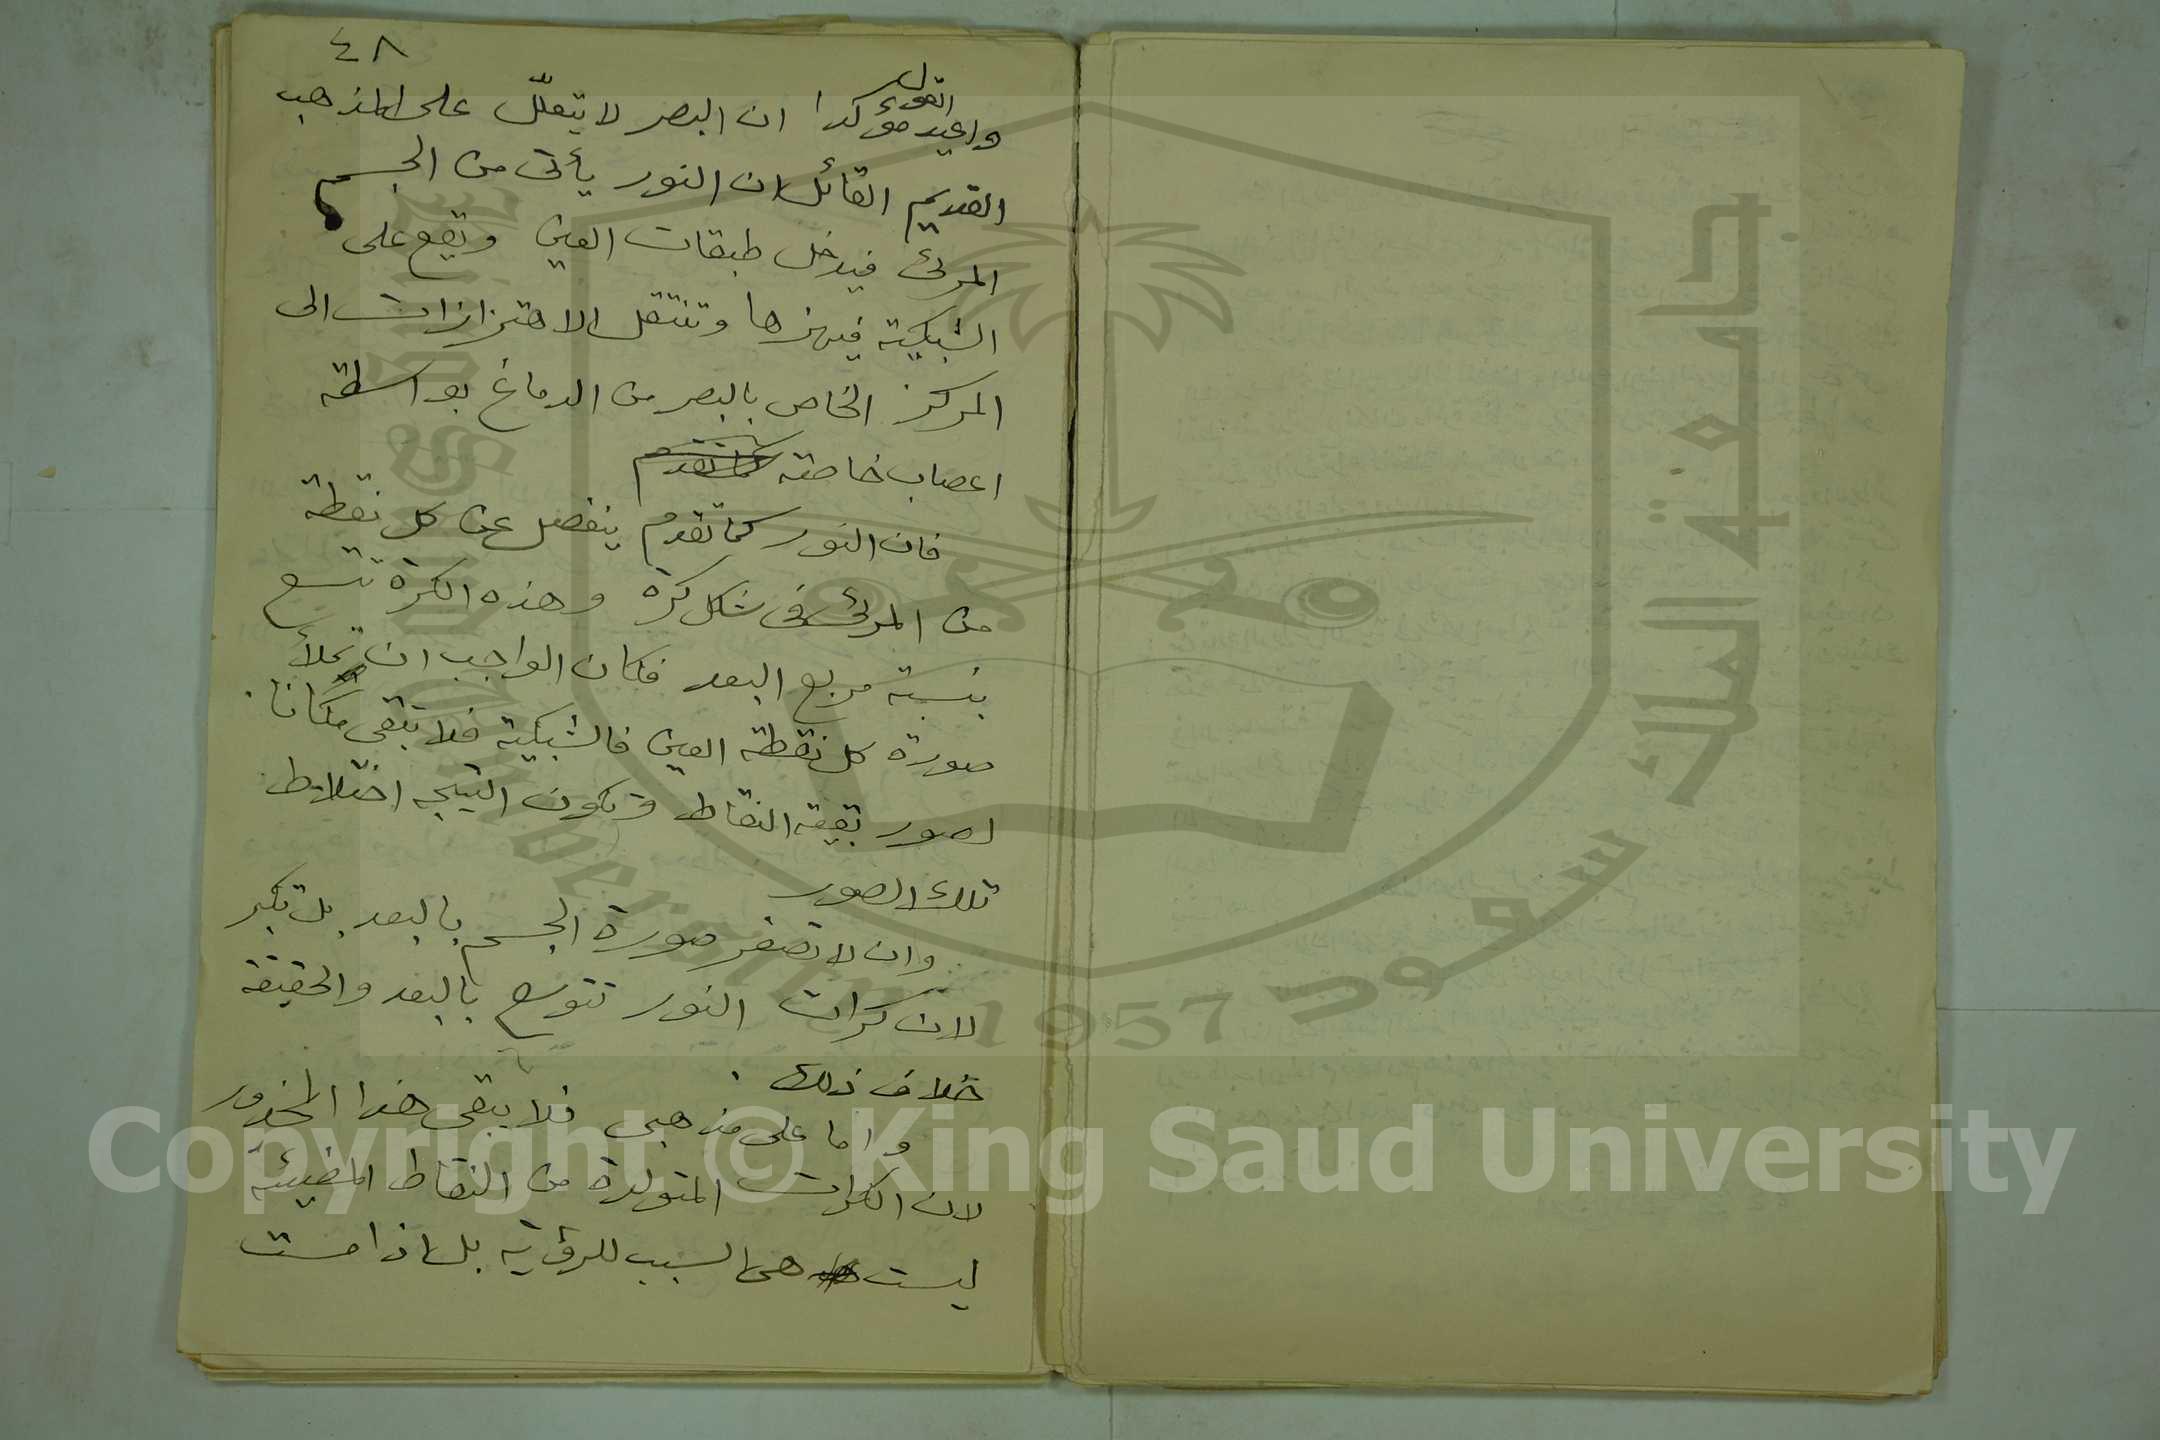 ٤٨
القول
واعيد مؤكدا ان البصر لا يتعلّل على المذهب
القديم القائل ان النور يأتى من الجسم
المرئى فيدخل طبقات العين ويقع على
الشبكية فيهزها وتنتقل الاهتزازات الى
المركز الخاص بالبصر من الدماغ بواسطة
اعصاب خاصة كما تقدم
فان النور كما تقدم ينفصل عن كل نقطة
من المرئى فى شكل كرة وهذه الكرة تتسع
بنسبة مربع البعد فكان الواجب ان تملأ
صورة كل نقطة العين فالشبكية فلا تبقى مكانا
لصور بقية النقاط وتكون النتيجه اختلاط
تلك الصور
وان لا تصغر صورة الجسم بالبعد بل تكبر
لان كرات النور تتوسع بالبعد والحقيقة
خلاف ذلك .
واما على مذهبى فلا يبقى هذا المحذور
لان الكرات المتولدة من النقاط المضيئة
ليست هى السبب للرؤية بل اذا مست
جامعة الملك سعود
King Saud University
1957
Copyright © King Saud University